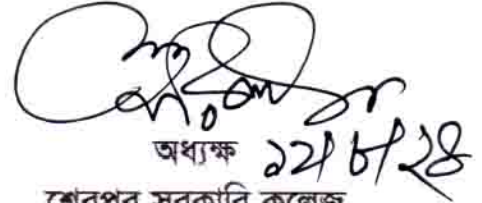 অধ্যক্ষ ১২/৮/২৪
শেরপুর সরকারি কলেজ